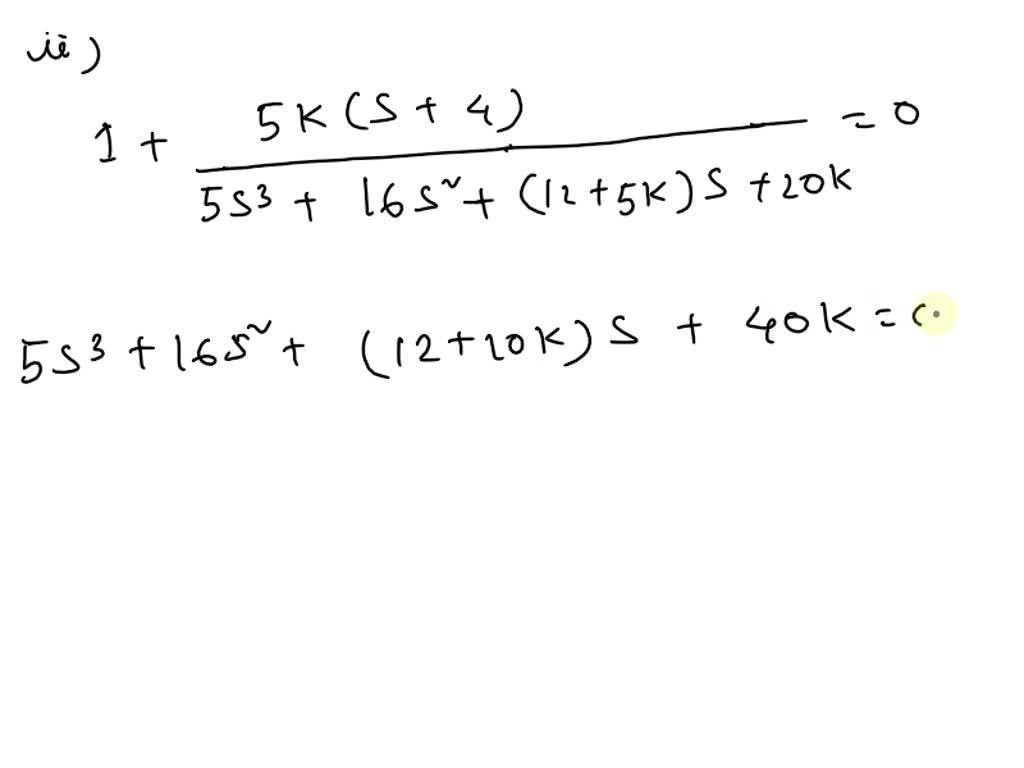 ii)
1 + 5K(S + 4) / 5S³ + 16S² + (12+5K)S + 20K = 0
5S³ + 16S² + (12+20K)S + 40K = 0